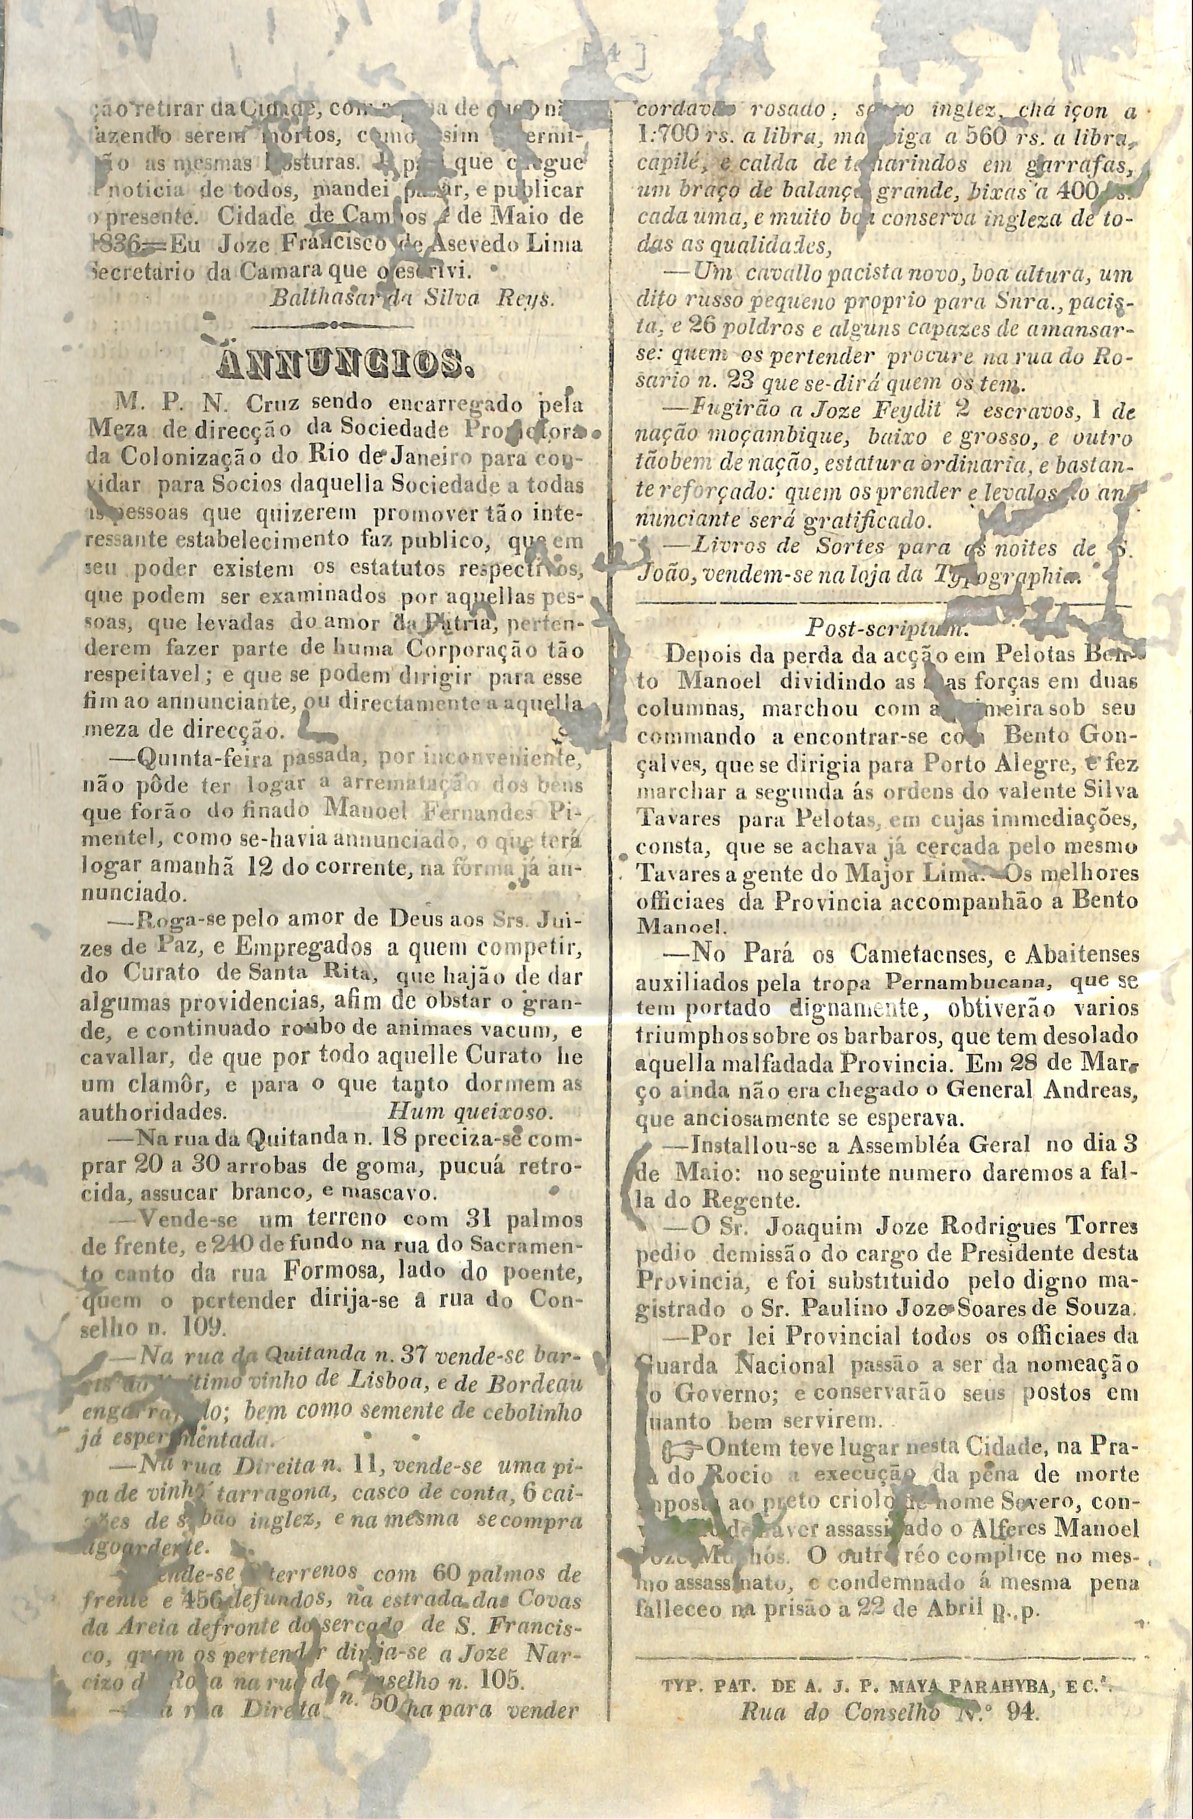 [ 4 ]
ção retirar da Cidade, com a de que o não
fazendo serem mortos, como assim determi-
não as mesmas Posturas. E para que chegue
á noticia de todos, mandei passar, e publicar
o presente. Cidade de Campos de Maio de
1836—Eu Joze Francisco de Asevedo Lima
Secretario da Camara que o escrivi.
Balthasar da Silva Reys.
ANNUNCIOS.
M. P. N. Cruz sendo encarregado pela
Meza de direcção da Sociedade Promotora
da Colonização do Rio de Janeiro para con-
vidar para Socios daquella Sociedade a todas
as pessoas que quizerem promover tão inte-
ressante estabelecimento faz publico, que em
seu poder existem os estatutos respectivos,
que podem ser examinados por aquellas pes-
soas, que levadas do amor da Patria, perten-
derem fazer parte de huma Corporação tão
respeitavel; e que se podem dirigir para esse
fim ao annunciante, ou directamente a aquella
meza de direcção.
—Quinta-feira passada, por inconveniente,
não pôde ter logar a arrematação dos bens
que forão do finado Manoel Fernandes Pi-
mentel, como se-havia annunciado, o que terá
logar amanhã 12 do corrente, na fórma já an-
nunciado.
—Roga-se pelo amor de Deus aos Srs. Jui-
zes de Paz, e Empregados a quem competir,
do Curato de Santa Rita, que hajão de dar
algumas providencias, afim de obstar o gran-
de, e continuado roubo de animaes vacum, e
cavallar, de que por todo aquelle Curato he
um clamôr, e para o que tanto dormem as
authoridades. Hum queixoso.
—Na rua da Quitanda n. 18 preciza-se com-
prar 20 a 30 arrobas de goma, pucuá retro-
cida, assucar branco, e mascavo.
—Vende-se um terreno com 31 palmos
de frente, e 240 de fundo na rua do Sacramen-
to canto da rua Formosa, lado do poente,
quem o pertender dirija-se á rua do Con-
selho n. 109.
—Na rua da Quitanda n. 37 vende-se bar-
ris do legitimo vinho de Lisboa, e de Bordeau
engarrafado; bem como semente de cebolinho
já esperimentada.
—Na rua Direita n. 11, vende-se uma pi-
pa de vinho tarragona, casco de conta, 6 cai-
xões de sabão inglez, e na mesma se compra
agoardente.
—Vende-se terrenos com 60 palmos de
frente e 456 defundos, na estrada das Covas
da Areia defronte do sercado de S. Francis-
co, quem os pertender dirija-se a Joze Nar-
cizo da Roza na rua do Conselho n. 105.
—Na rua Direita n. 50 ha para vender
cordavão rosado, inglez, chá içon a
1:700 rs. a libra, manteiga a 560 rs. a libra,
capilé, e calda de tamarindos em garrafas,
um braço de balança grande, bixas a 400 rs.
cada uma, e muito boa conserva ingleza de to-
das as qualidades,
—Um cavallo pacista novo, boa altura, um
dito russo pequeno proprio para Snra., pacis-
ta, e 26 poldros e alguns capazes de amansar-
se: quem os pertender procure na rua do Ro-
sario n. 23 que se-dirá quem os tem.
—Fugirão a Joze Feydit 2 escravos, 1 de
nação moçambique, baixo e grosso, e outro
tãobem de nação, estatura ordinaria, e bastan-
te reforçado: quem os prender e levalos ao an-
nunciante será gratificado.
—Livros de Sortes para as noites de S.
João, vendem-se na loja da Typographia.
Post-scriptum.
Depois da perda da acção em Pelotas Ben-
to Manoel dividindo as suas forças em duas
columnas, marchou com a primeira sob seu
commando a encontrar-se com Bento Gon-
çalves, que se dirigia para Porto Alegre, e fez
marchar a segunda ás ordens do valente Silva
Tavares para Pelotas, em cujas immediações,
consta, que se achava já cercada pelo mesmo
Tavares a gente do Major Lima. Os melhores
officiaes da Provincia accompanhão a Bento
Manoel.
—No Pará os Cametaenses, e Abaitenses
auxiliados pela tropa Pernambucana, que se
tem portado dignamente, obtiverão varios
triumphos sobre os barbaros, que tem desolado
aquella malfadada Provincia. Em 28 de Mar-
ço ainda não era chegado o General Andreas,
que anciosamente se esperava.
—Installou-se a Assembléa Geral no dia 3
de Maio: no seguinte numero daremos a fal-
la do Regente.
—O Sr. Joaquim Joze Rodrigues Torres
pedio demissão do cargo de Presidente desta
Provincia, e foi substituido pelo digno ma-
gistrado o Sr. Paulino Joze Soares de Souza.
—Por lei Provincial todos os officiaes da
Guarda Nacional passão a ser da nomeação
do Governo; e conservarão seus postos em
quanto bem servirem.
☞ Ontem teve lugar nesta Cidade, na Pra-
ça do Rocio a execução da pena de morte
imposta ao preto criolo de nome Severo, con-
de haver assassinado o Alferes Manoel
Joze O outro réo complice no mes-
mo assassinato, e condemnado á mesma pena
falleceo na prisão a 22 de Abril p. p.
TYP. PAT. DE A. J. P. MAYA PARAHYBA, E C.ª.
Rua do Conselho N.º 94.